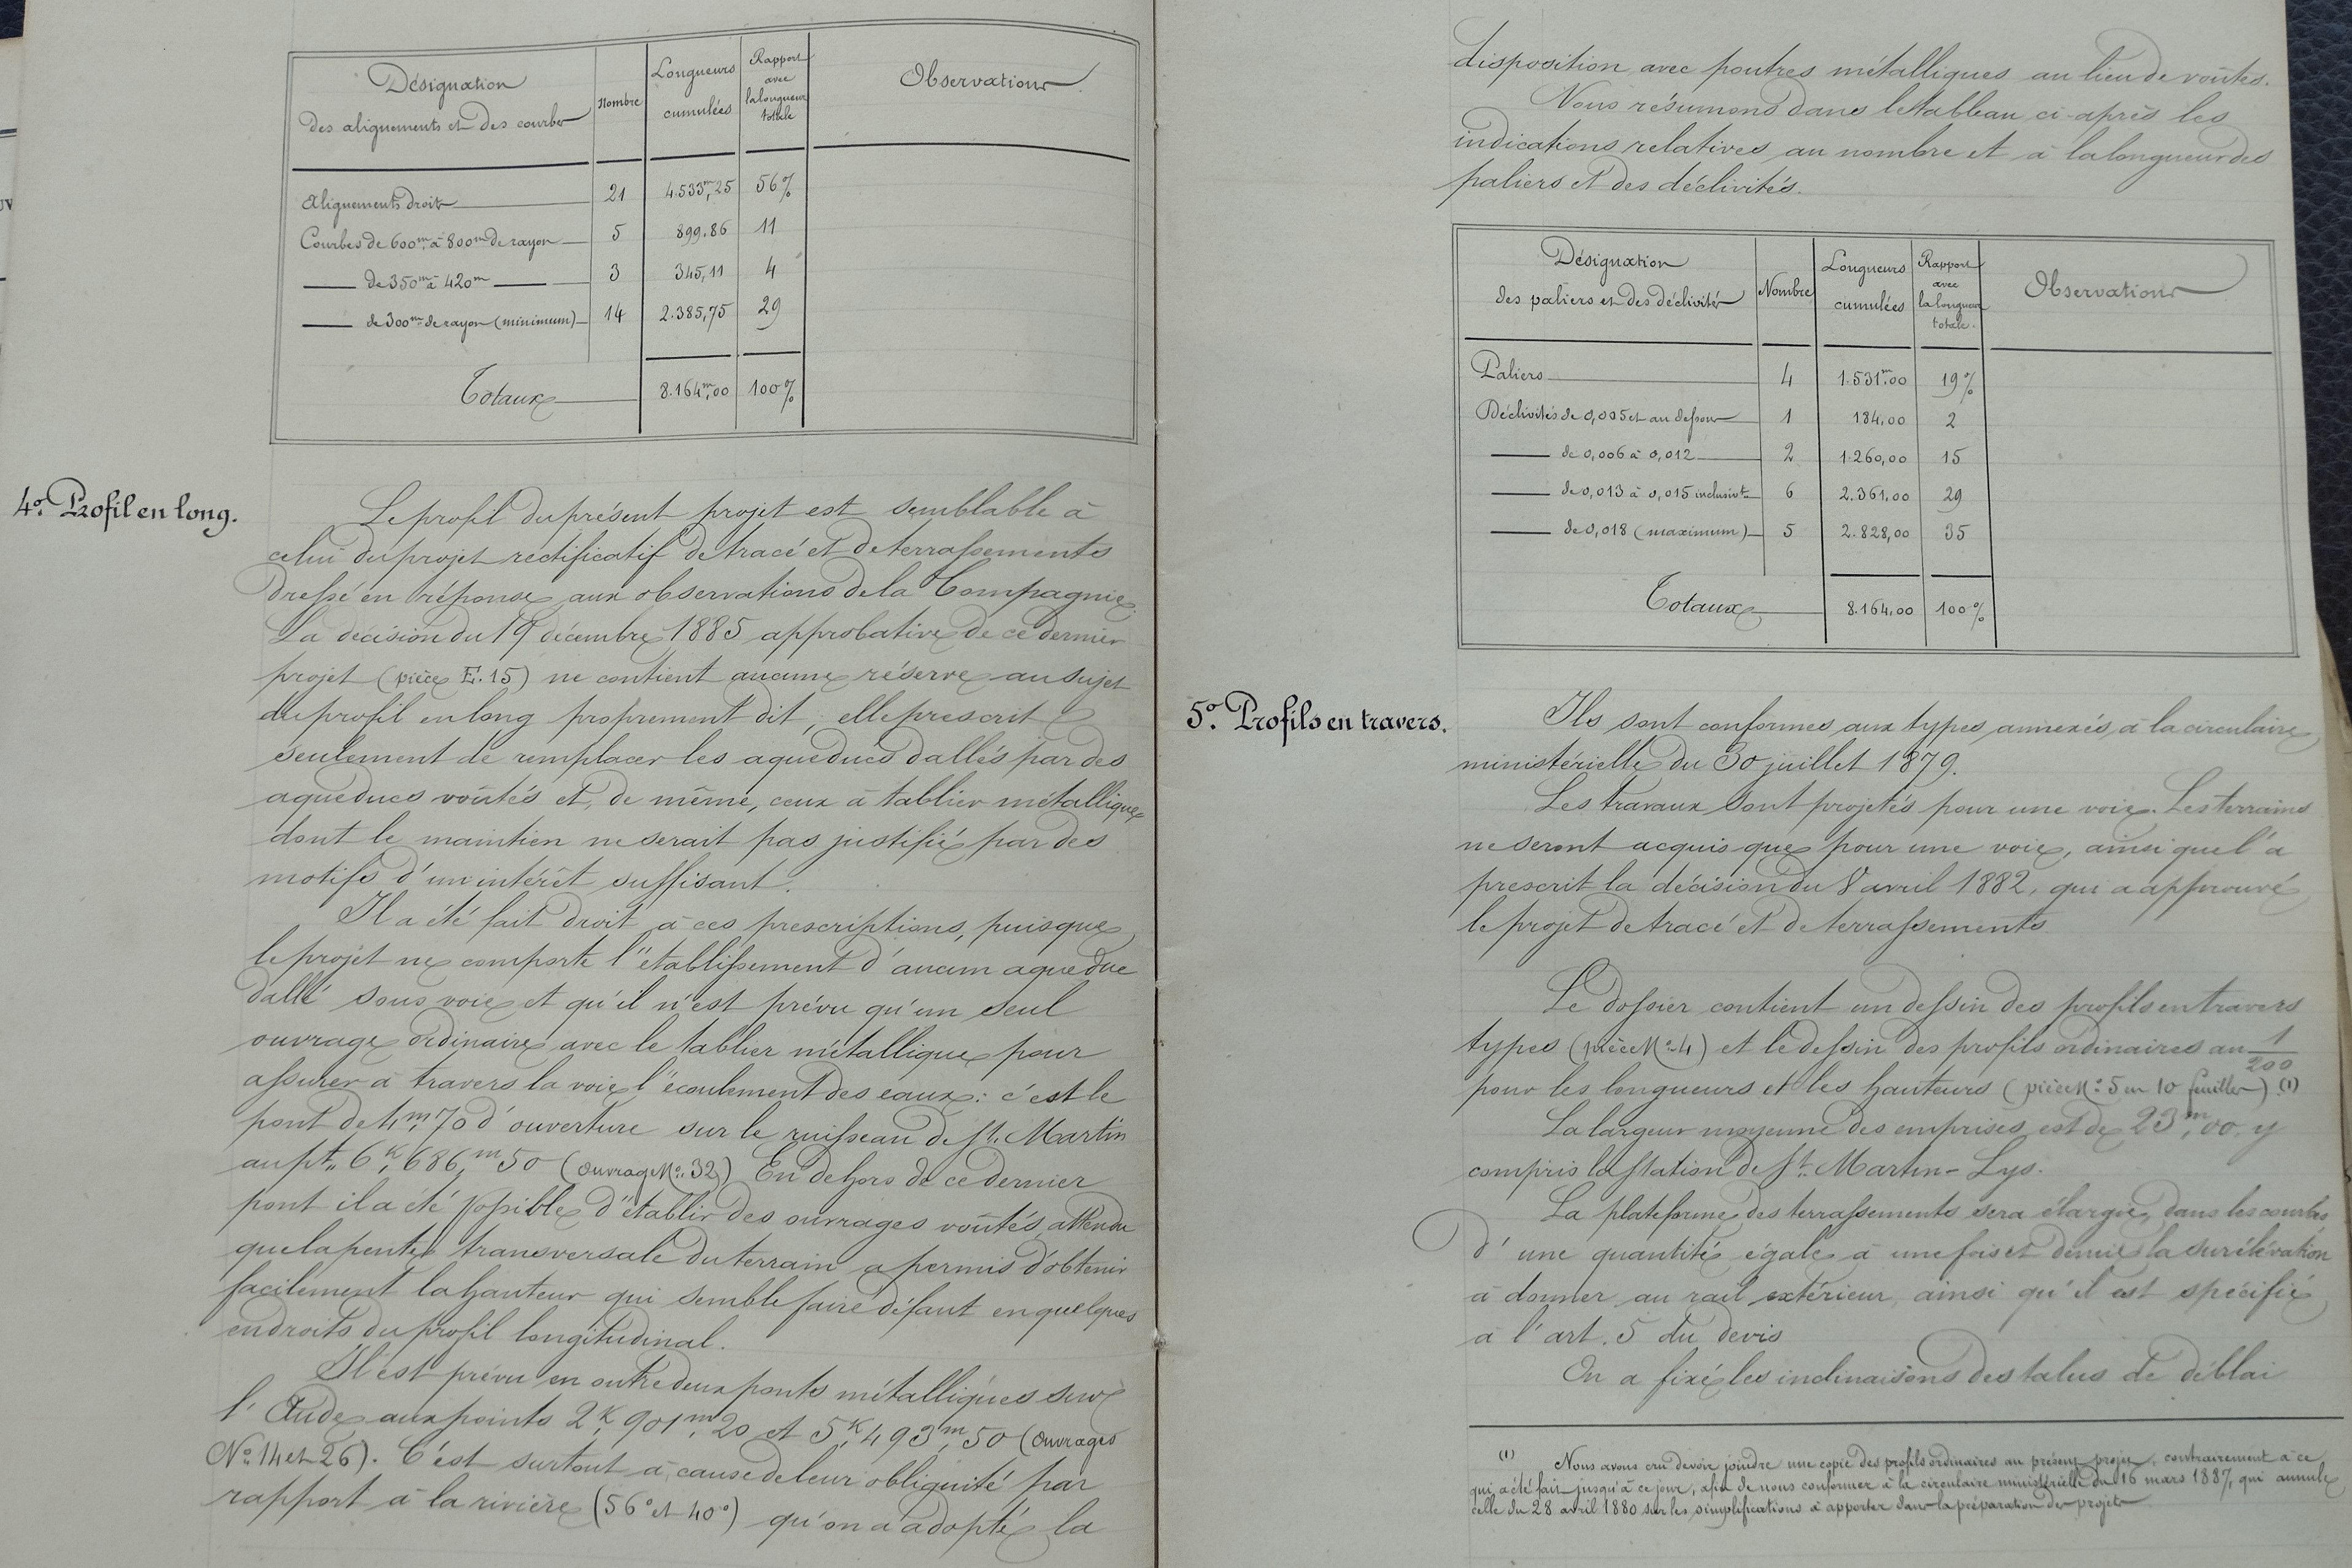 Désignation des alignements et des courbes | Nombre | Longueurs cumulées | Rapport avec la longueur totale | Observations
Alignements droits | 21 | 4.533m,25 | 56%
Courbes de 600m à 800m de rayon | 5 | 899.86 | 11
— de 350m à 420m — | 3 | 345,11 | 4
— de 300m de rayon (minimum) | 14 | 2.385,75 | 29
Totaux | 8.164m,00 | 100%
4o. Profil en long.
Le profil du présent projet est semblable à
celui du projet rectificatif de tracé et de terrassements
dressé en réponse aux observations de la Compagnie.
La décision du 19 décembre 1885 approbative de ce dernier
projet (pièce E.15) ne contient aucune réserve au sujet
du profil en long proprement dit, elle prescrit
seulement de remplacer les aqueducs dallés par des
aqueducs voûtés et, de même, ceux à tablier métallique
dont le maintien ne serait pas justifié par des
motifs d'un intérêt suffisant.
Il a été fait droit à ces prescriptions, puisque
le projet ne comporte l'établissement d'aucun aqueduc
dallé sous voie et qu'il n'est prévu qu'un seul
ouvrage ordinaire avec le tablier métallique pour
assurer à travers la voie l'écoulement des eaux: c'est le
pont de 4m,70 d'ouverture sur le ruisseau de St. Martin
au pt. 6k,686,m50 (ouvrage No. 32) En dehors de ce dernier
pont il a été possible d'établir des ouvrages voûtés, attendu
que la pente transversale du terrain a permis d'obtenir
facilement la hauteur qui semble faire défaut en quelques
endroits du profil longitudinal.
Il est prévu en outre deux ponts métalliques sur
l'Aude aux points 2k,901m,20 et 5k,493m,50 (Ouvrages
No. 14 et 26). C'est surtout à cause de leur obliquité par
rapport à la rivière (56° et 40°) qu'on a adopté la
disposition avec poutres métalliques au lieu de voûtes.
Nous résumons dans le tableau ci-après les
indications relatives au nombre et à la longueur des
paliers et des déclivités.
Désignation des paliers et des déclivités | Nombre | Longueurs cumulées | Rapport avec la longueur totale. | Observations
Paliers | 4 | 1.531m,00 | 19%
Déclivités de 0,005 et au dessous | 1 | 184,00 | 2
— de 0,006 à 0,012 | 2 | 1.260,00 | 15
— de 0,013 à 0,015 inclusivt | 6 | 2.361,00 | 29
— de 0,018 (maximum) | 5 | 2.828,00 | 35
Totaux | 8.164,00 | 100%
5o. Profils en travers.
Ils sont conformes aux types annexés à la circulaire
ministérielle du 30 juillet 1879.
Les travaux sont projetés pour une voie. Les terrains
ne seront acquis que pour une voie, ainsi que l'a
prescrit la décision du 8 avril 1882, qui a approuvé
le projet de tracé et de terrassements
Le dossier contient un dessin des profils en travers
types (pièce No. 4) et le dessin des profils ordinaires au 1/200
pour les longueurs et les hauteurs (pièce No. 5 en 10 feuilles) (1)
La largeur moyenne des emprises est de 23m,00. y
compris la station de St. Martin-Lys.
La plateforme des terrassements sera élargie, dans les courbes,
d'une quantité égale à une fois et demie la surélévation
à donner au rail extérieur, ainsi qu'il est spécifié
à l'art. 5 du devis
On a fixé les inclinaisons des talus de déblai
(1) Nous avons cru devoir joindre une copie des profils ordinaires au présent projet, contrairement à ce
qui a été fait jusqu'à ce jour, afin de nous conformer à la circulaire ministérielle du 16 mars 1887, qui annule
celle du 28 avril 1880 sur les simplifications à apporter dans la préparation des projets